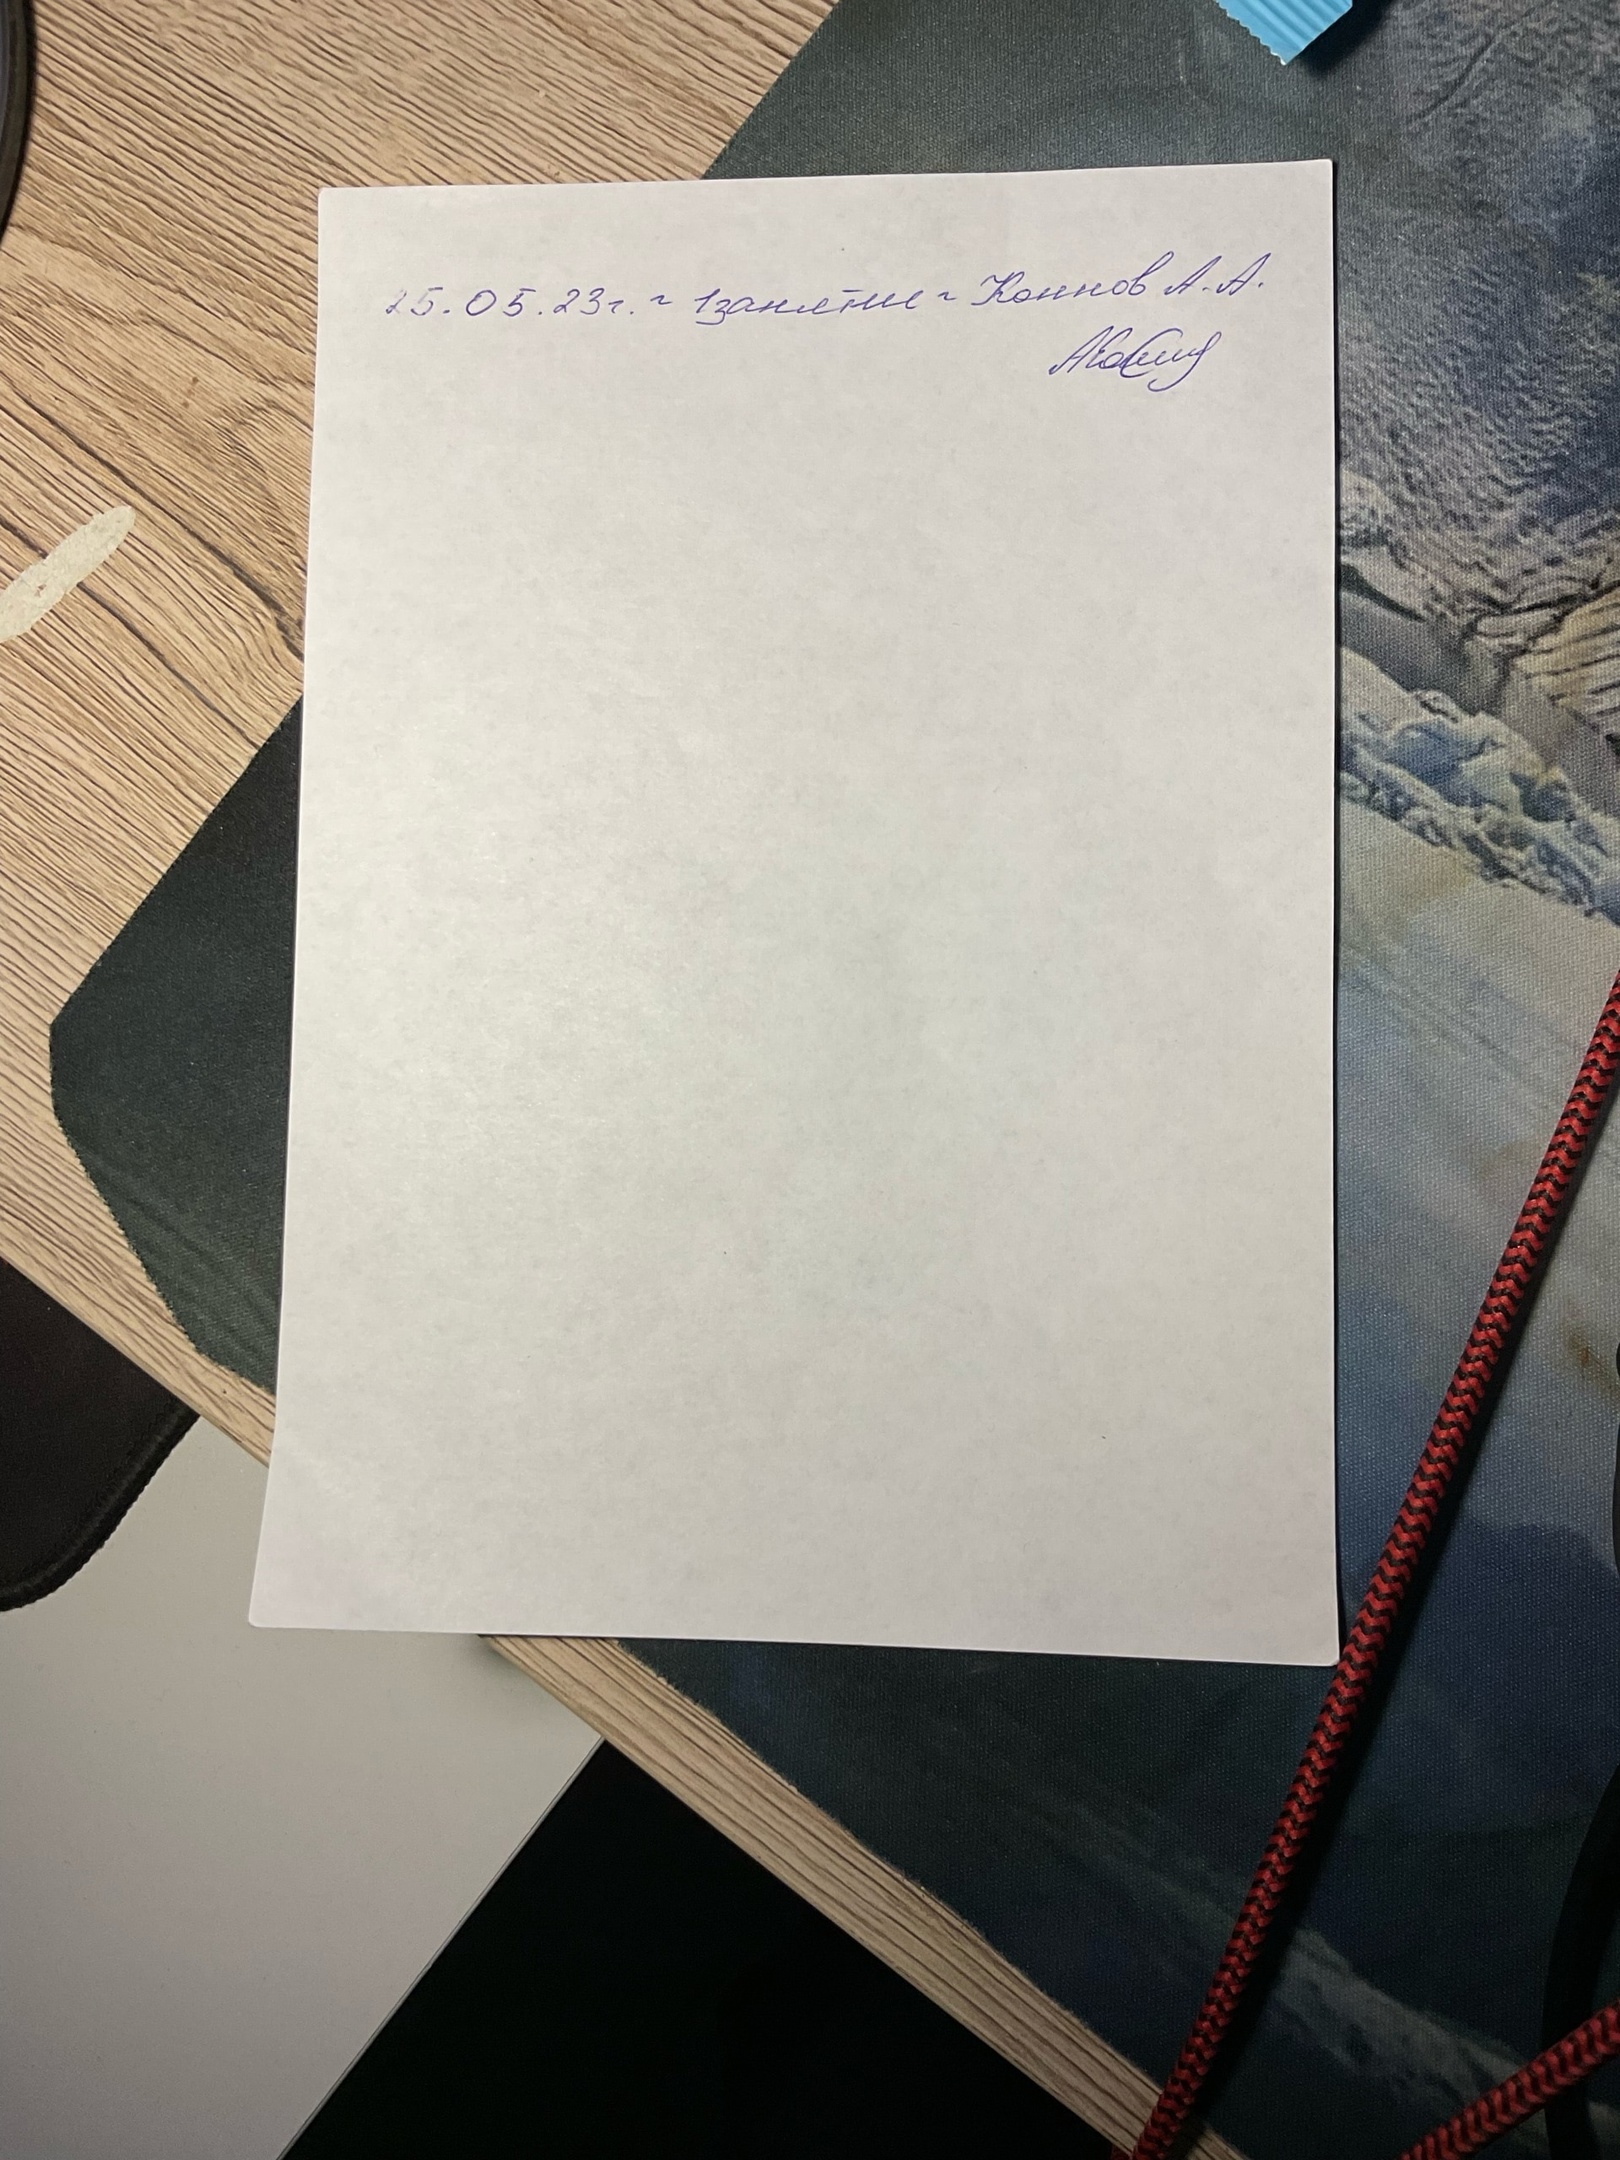 25.05.23г. ~ 1занятие ~ Коннов А.А.